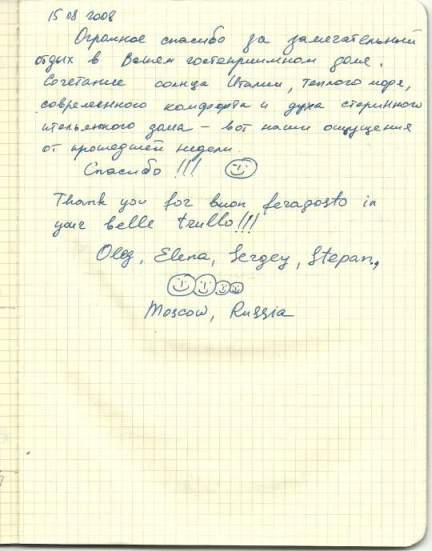 15 08 2008
Огромное спасибо за замечательный
отдых в Вашем гостеприимном доме.
Сочетание солнца Италии, теплого моря,
современного комфорта и духа старинного
итальянского дома – вот наши ощущения
от прошедшей недели.
Спасибо !!!
Thank you for buon feragosto in
your belle trullo!!!
Oleg, Elena, Sergey, Stepan,
Moscow, Russia